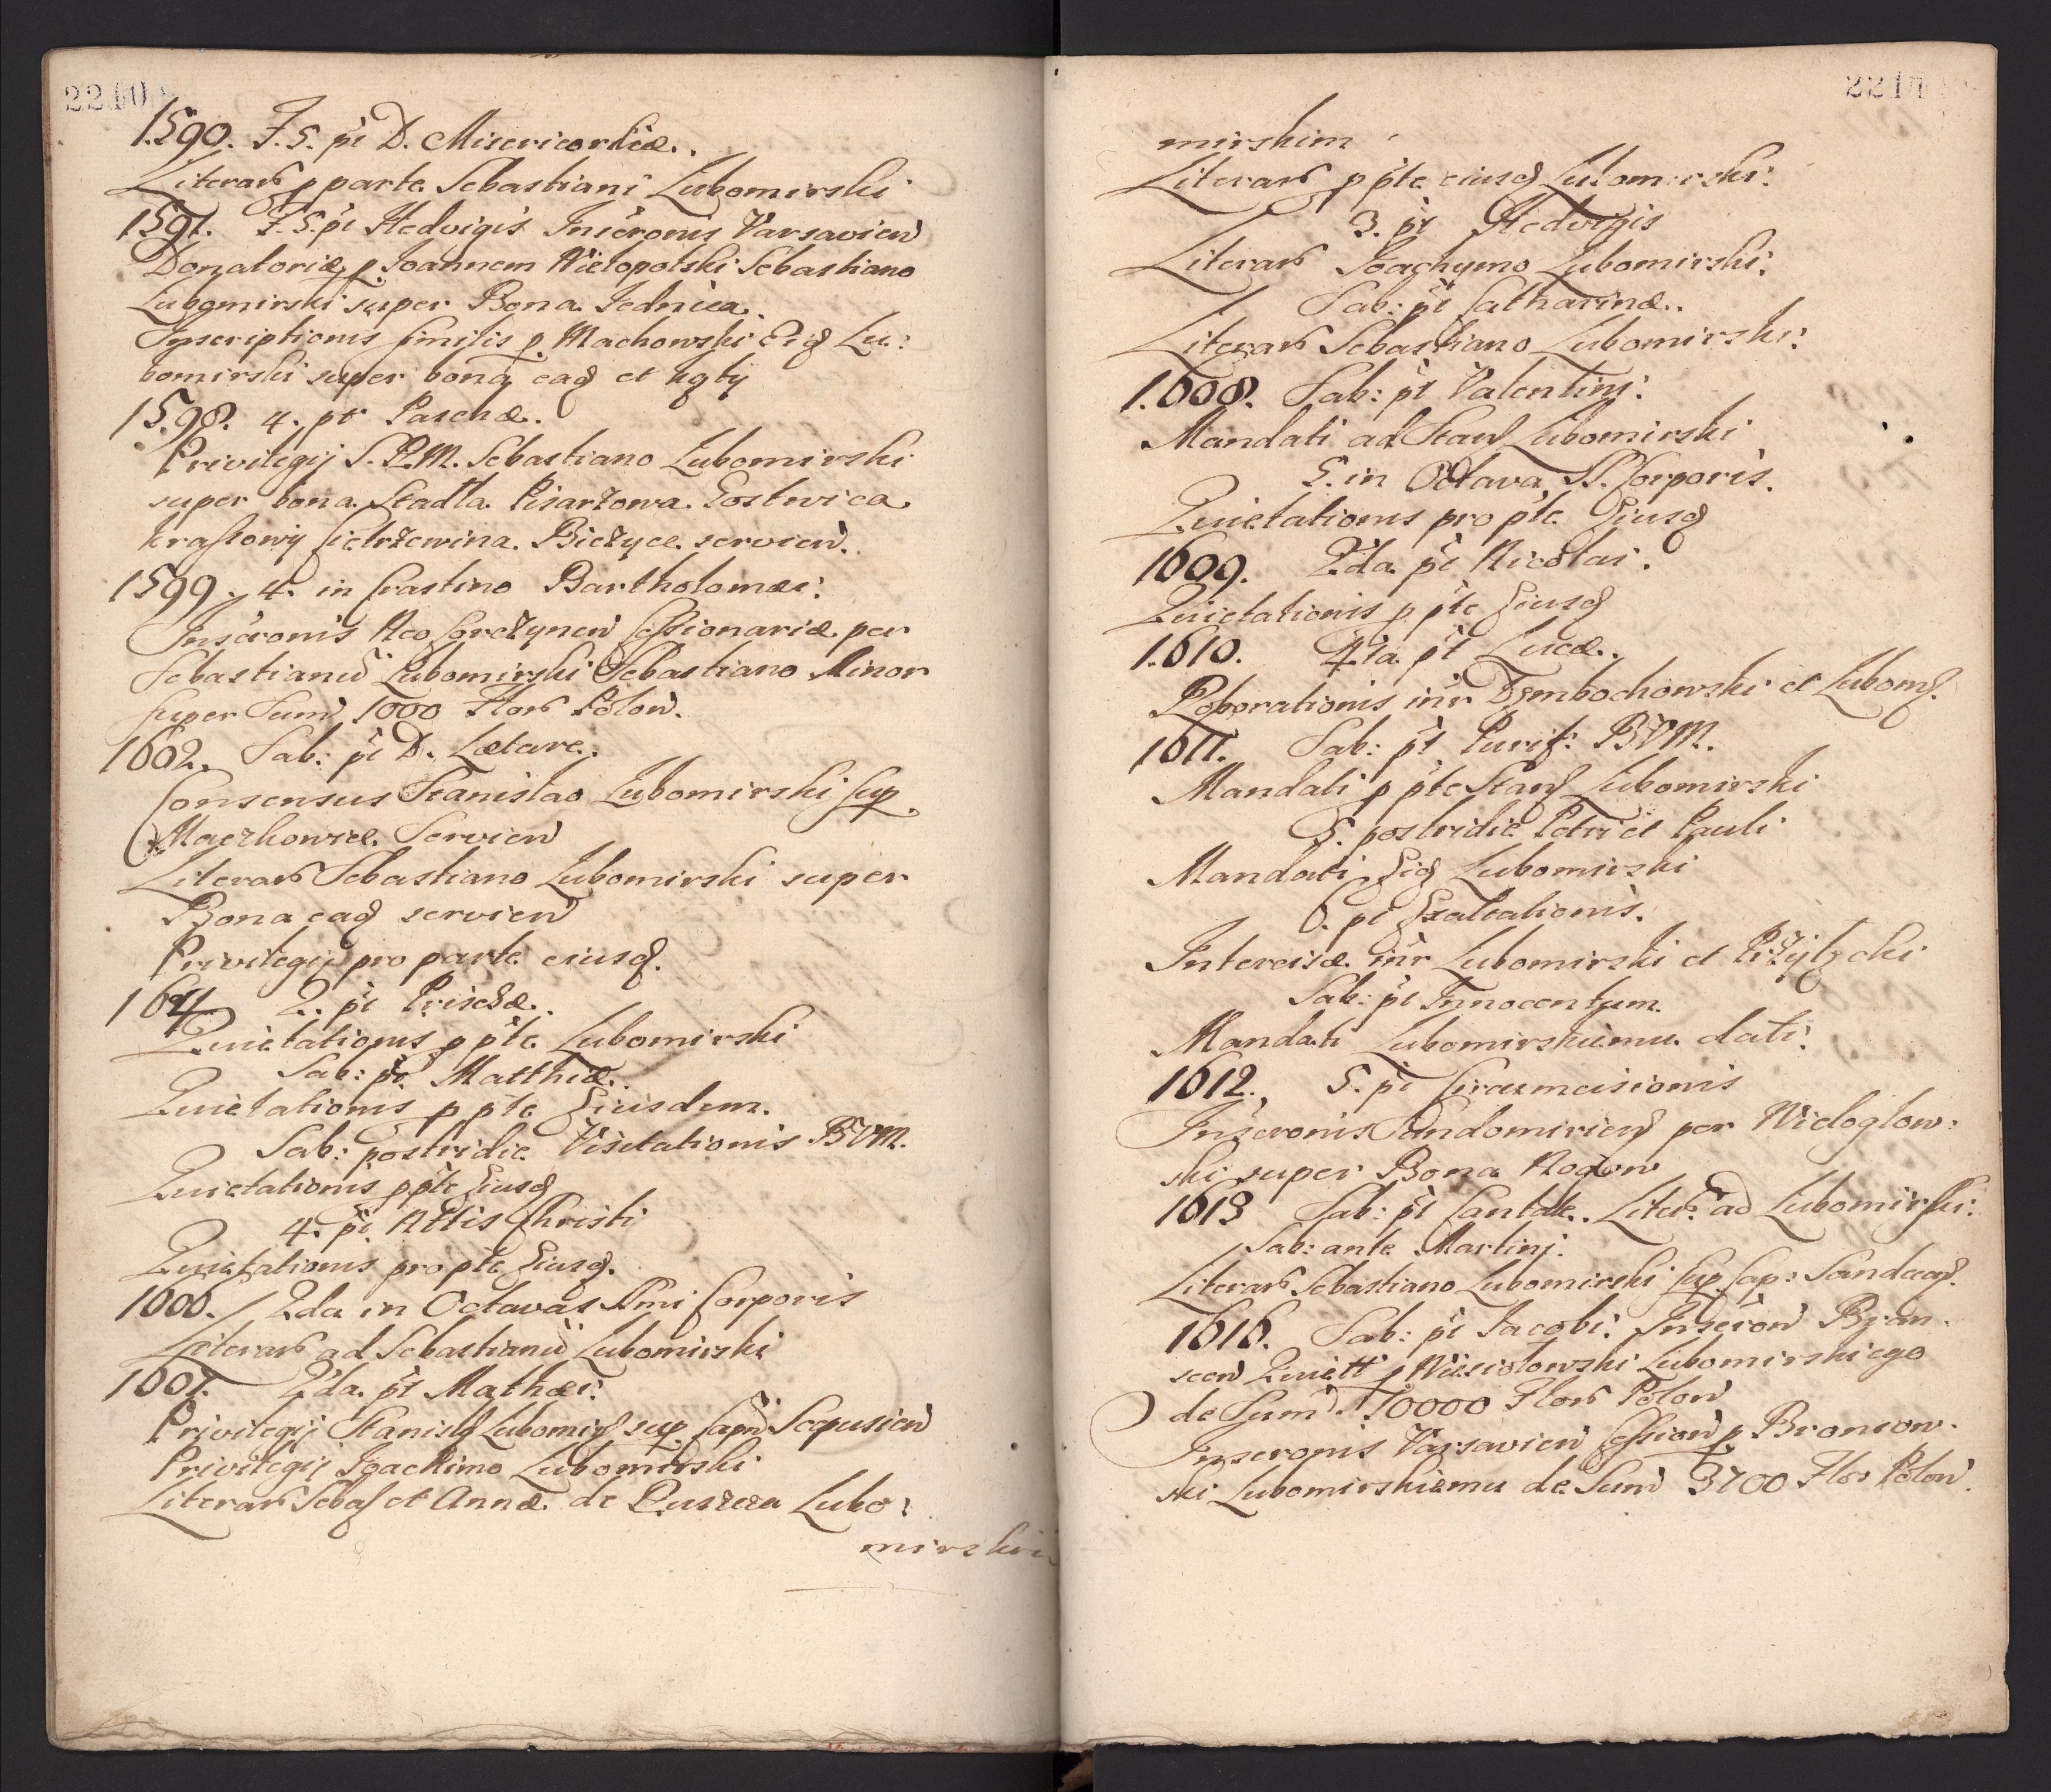 2210
1590. F. 5. pt D. Misericordiæ.
Literar p parte Sebastiani Lubomirski
1591. F. 5. pt Hedvigis Inscronis Varsavien
Donatoriæ p Joannem Wielopolski Sebastiano
Lubomirski super Bona Jednica.
Inscriptionis similis p. Machowski Eid Lu:
bomirski super bona ead et
1598. 4. pt Paschæ.
Privilegij S. R. M. Sebastiano Lubomirski
super bona Stadla Pisarzowa Gostwica
Krasłowy Cietrzewina. Biczyce servien.
1599. 4. in Crastino Bartholomæi.
Inscronis Rco Corczynen Cessionariæ per
Sebastianu Lubomirski Sebastiano Minor
super Sum 1000 Flor Polon.
1602. Sab: pt D. Lætare.
Consensus Stanislao Lubomirski sup
Maczkowice Servien
Literar Sebastiano Lubomirski super
Bona ead servien
Privilegij pro parte eiusd.
1604 2. pt Priscæ.
Quietationis p pte Lubomirski
Sab: pt Matthiæ.
Quietationis p pte Eiusdem.
Sab: postridie Visitationis BVM.
Quietationis p pte Eiusd
4. pt Nttis Christi
Quietationis pro pte Eiusd.
1606. 2da in Octavas SSmi Corporis
Literar ad Sebastianu Lubomirski
1607. 2da pt Mathæi.
Privilegij Stanisl Lubomir sup Captu Scepusien
Privilegij Joachimo Lubomirski
Literar Sebas et Annæ de Ruszcza Lubo:
mirskim
2211
mirskim
Literar p pte eiusd Lubomirski.
3. pt Hedvigis
Literar Joachymo Lubomirski.
Sab: pt Catharinæ.
Literar Sebastiano Lubomirski.
1608. Sab: pt Valentini.
Mandati ad Stans Lubomirski
5. in Octava SS. Corporis.
Quietationis pro pte Eiusd
1609. 2da pt Nicolai.
Quietationis p pte Eiusd
1610. 4ta pt Lucæ.
Roborationis intr Dembochowski et Luboms.
1611. Sab: pt Purif: BVM.
Mandati p pte Stans Lubomirski
5. postridie Petri et Pauli
Mandati Eid Lubomirski
6. pt Exaltationis.
Intercisæ intr Lubomirski et Przyłęcki
Sab: pt Innocentum.
Mandati Lubomirskiemu dati.
1612. 5. pt Circumcisionis
Inscronis Sandomirien per Wieloglow:
ski super Bona Rogow
1613 Sab: pt Cantate. Liter ad Lubomirski.
Sab: ante Martini.
Literar Sebastiano Lubomirski sup Cap: Sandecen.
1616. Sab: pt Jacobi. Inscron Bran-
scen Quiett p Wiesiołowski Lubomirskiego
de Sum 10000 Flor Polon
Inscronis Varsavien Cession p Broniow-
ski Lubomirskiemu de Sum 3700 Flor Polon.